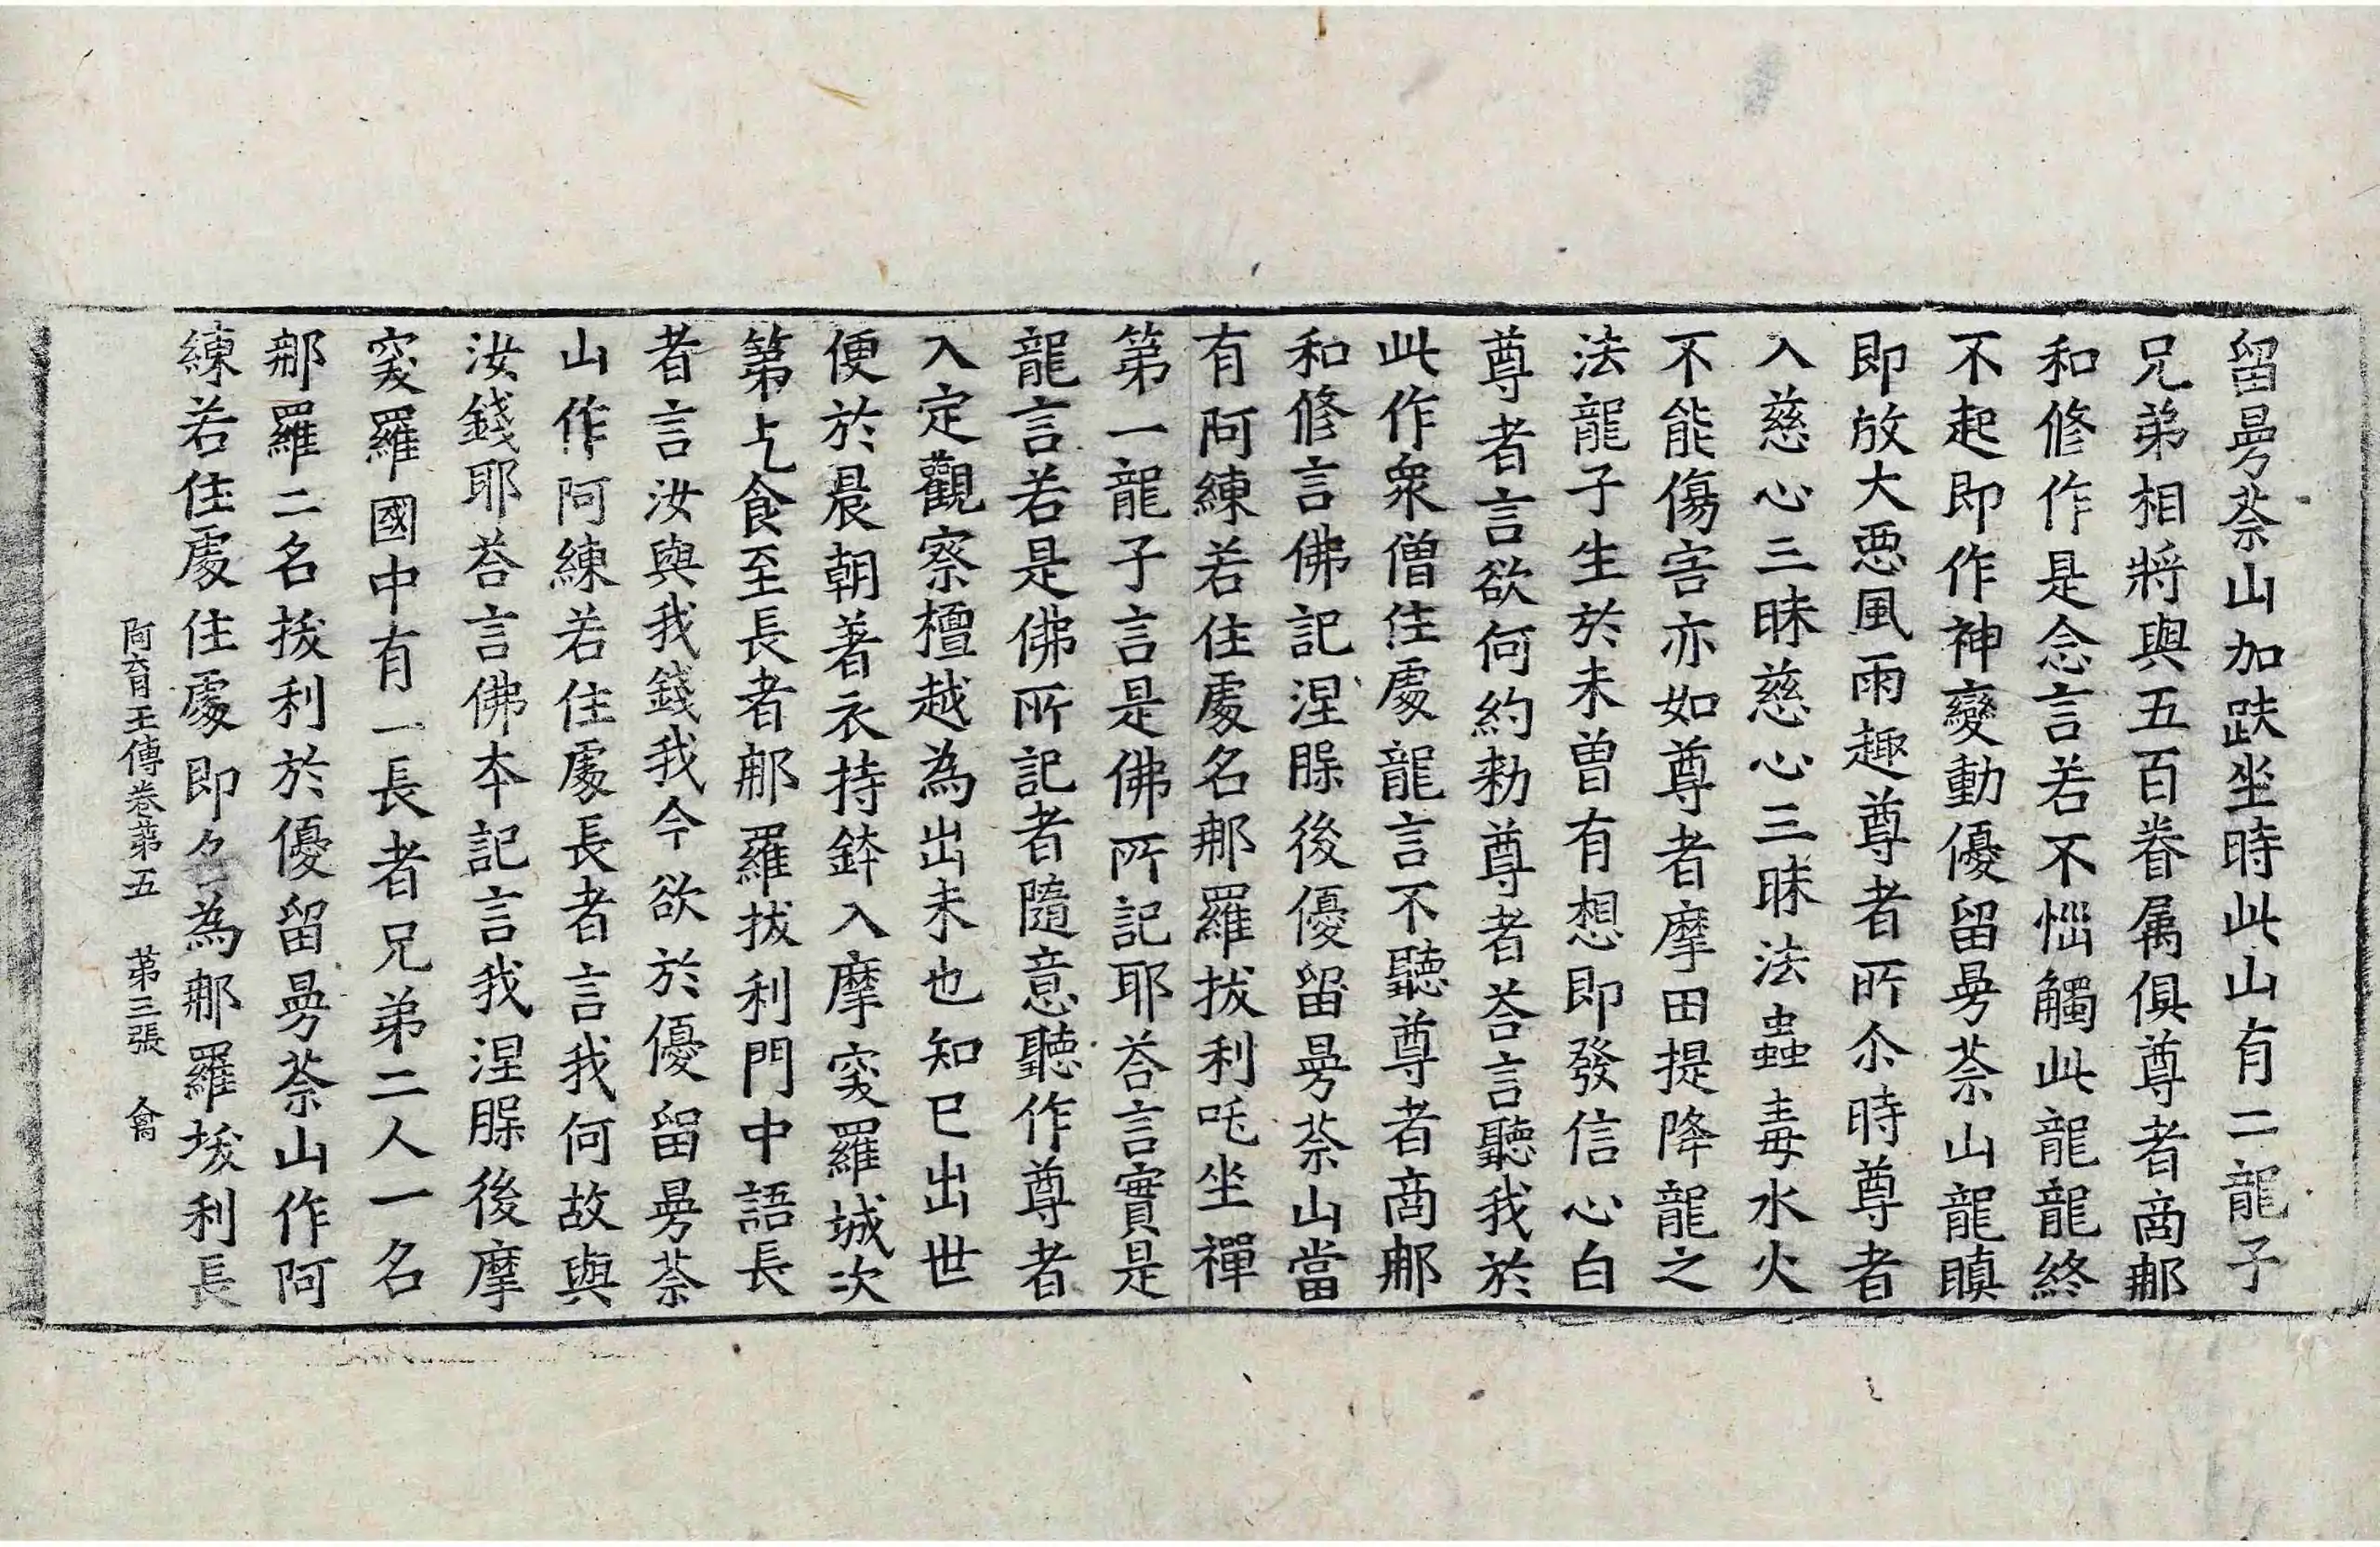 留曼荼山加趺坐時此山有二龍子
兄弟相將與五百眷属俱尊者商郍
和修作是念言若不惱觸此龍龍終
不起即作神變動優留曼荼山龍瞋
即放大惡風雨趣尊者所尒時尊者
入慈心三昧慈心三昧法蟲毒水火
不能傷害亦如尊者摩田提降龍之
法龍子生於未曽有想即發信心白
尊者言欲何約勑尊者荅言聽我於
此作衆僧住處龍言不聽尊者商郍
和修言佛記涅脲後優留曼荼山當
有阿練若住處名郍羅拔利吒坐禪
第一龍子言是佛所記耶荅言實是
龍言若是佛所記者隨意聽作尊者
入定觀察檀越為出未也知已出世
便於晨朝著衣持鉢入摩突羅城次
第乞食至長者郍羅拔利門中語長
者言汝與我錢我今欲於優留曼荼
山作阿練若住處長者言我何故與
汝錢耶荅言佛夲記言我涅脲後摩
突羅國中有一長者兄弟二人一名
郍羅二名拔利於優留曼荼山作阿
練若住處住處即名為郍羅拔利長
阿育王傳卷第五　第三張　龠